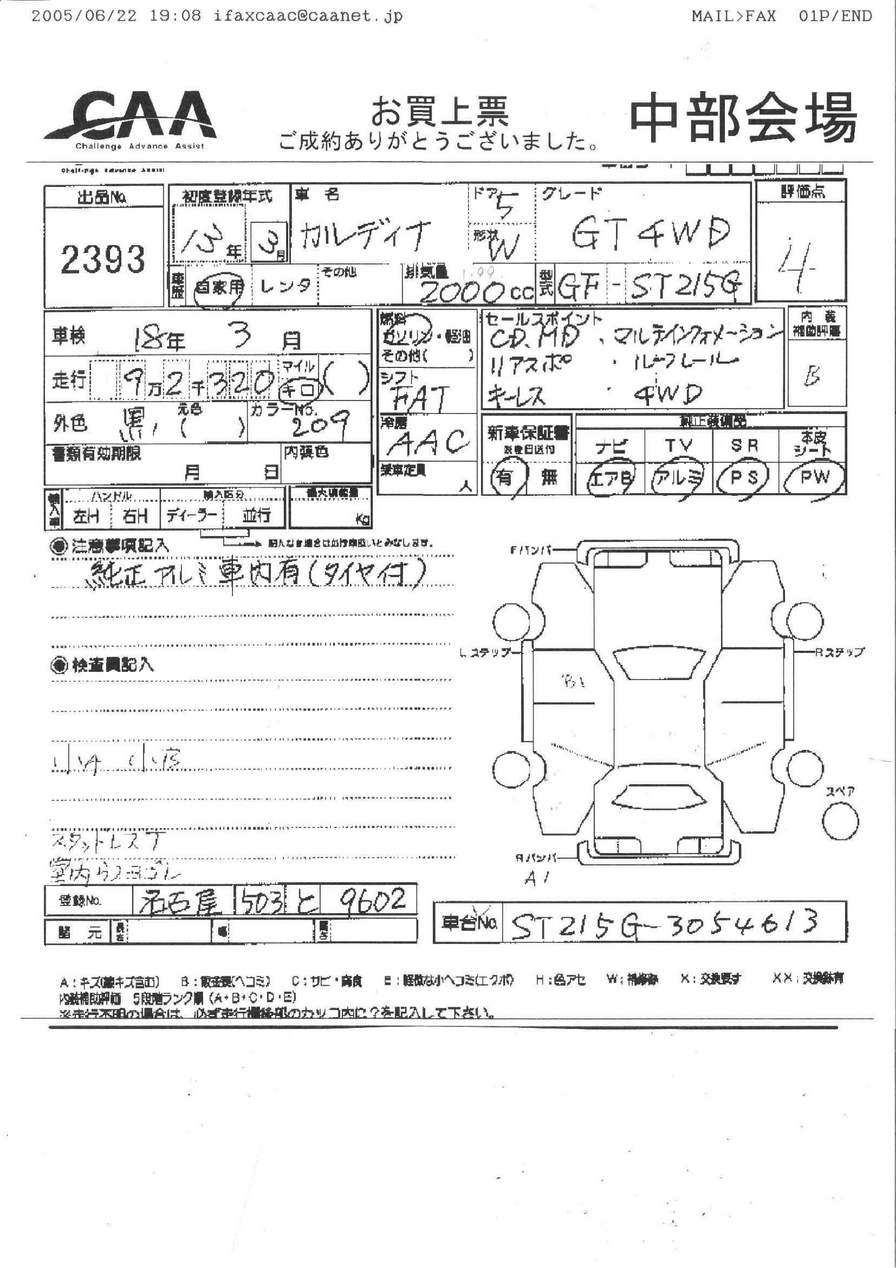 2005/06/22 19:08 ifaxcaac@caanet.jp MAIL>FAX 01P/END
CAA
Challenge Advance Assist
お買上票
ご成約ありがとうございました。
中部会場
出品No.
2393
初度登録年式
13年 3月
車名
カルディナ
ドア 5
形状 W
グレード
GT 4WD
評価点
4
車歴
自家用 レンタ その他
排気量
2000cc
型式
GF-ST215G
車検 18年 3月
走行 9万2千320 マイル キロ ( )
外色 黒 元色 ( ) カラーNo. 209
書類有効期限 月 日 内張色
燃料
ガソリン・軽油
その他( )
シフト
FAT
冷房
AAC
乗車定員 人
セールスポイント
CD, MD、マルチインフォメーション
リアスポ、ルーフレール
キーレス 4WD
内装
補助評価
B
新車保証書
有 無
純正装備品
ナビ TV SR 本皮シート
エアB アルミ PS PW
輸入車
ハンドル 輸入区分
左H 右H ディーラー 並行
最大積載量
Kg
注意事項記入
純正アルミ車内有(タイヤ付)
検査員記入
スタッドレスT
登録No. 名古屋 503 と 9602
諸元 長さ 幅 高さ
Fバンパー
Lステップ
Rステップ
B1
スペア
Rバンパー
A1
車台No. ST215G-3054613
A:キズ(線キズ含む) B:鈑金要(ヘコミ) C:サビ・腐食 E:軽微な小ヘコミ(エクボ) H:色アセ W:補修跡 X:交換要す XX:交換跡有
内装補助評価 5段階ランク順 (A・B・C・D・E)
※走行不明の場合は、必ず走行欄後部のカッコ内に?を記入して下さい。